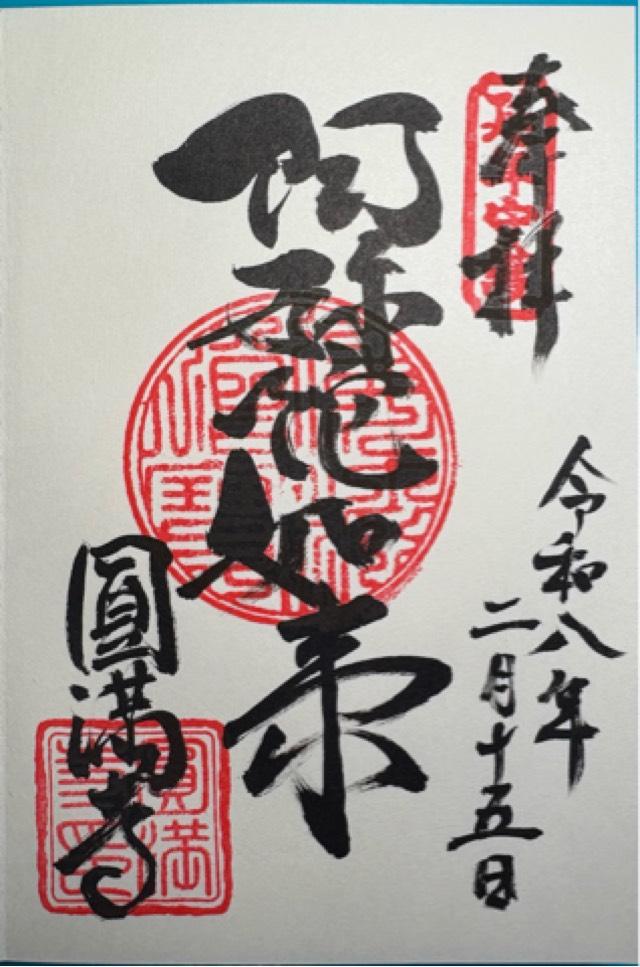 奉拝
令和八年
二月十五日
阿弥陀如来
圓満寺